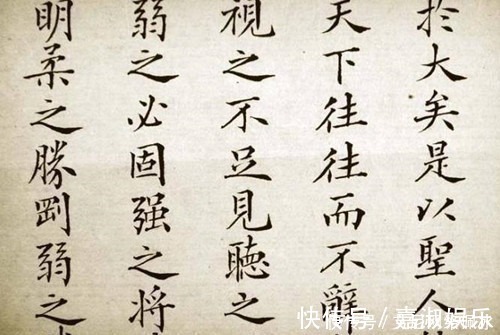 於大矣是以聖人
天下往往而不辭
視之不足見聽之
弱之必固强之将
明柔之勝剛弱之
快传号 / 嘉淑娱乐